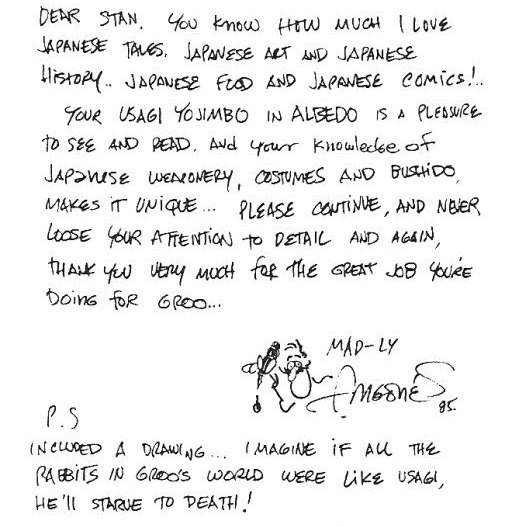 DEAR STAN. YOU KNOW HOW MUCH I LOVE
JAPANESE TALES. JAPANESE ART AND JAPANESE
HISTORY.. JAPANESE FOOD AND JAPANESE COMICS!..
YOUR USAGI YOJIMBO IN ALBEDO IS A PLEASURE
TO SEE AND READ. AND YOUR KNOWLEDGE OF
JAPANESE WEAPONERY, COSTUMES AND BUSHIDO,
MAKES IT UNIQUE... PLEASE CONTINUE, AND NEVER
LOOSE YOUR ATTENTION TO DETAIL AND AGAIN,
THANK YOU VERY MUCH FOR THE GREAT JOB YOU'RE
DOING FOR GROO...
MAD-LY
ARAGONES
85.
P.S
INCLUDED A DRAWING... IMAGINE IF ALL THE
RABBITS IN GROO'S WORLD WERE LIKE USAGI,
HE'LL STARVE TO DEATH!